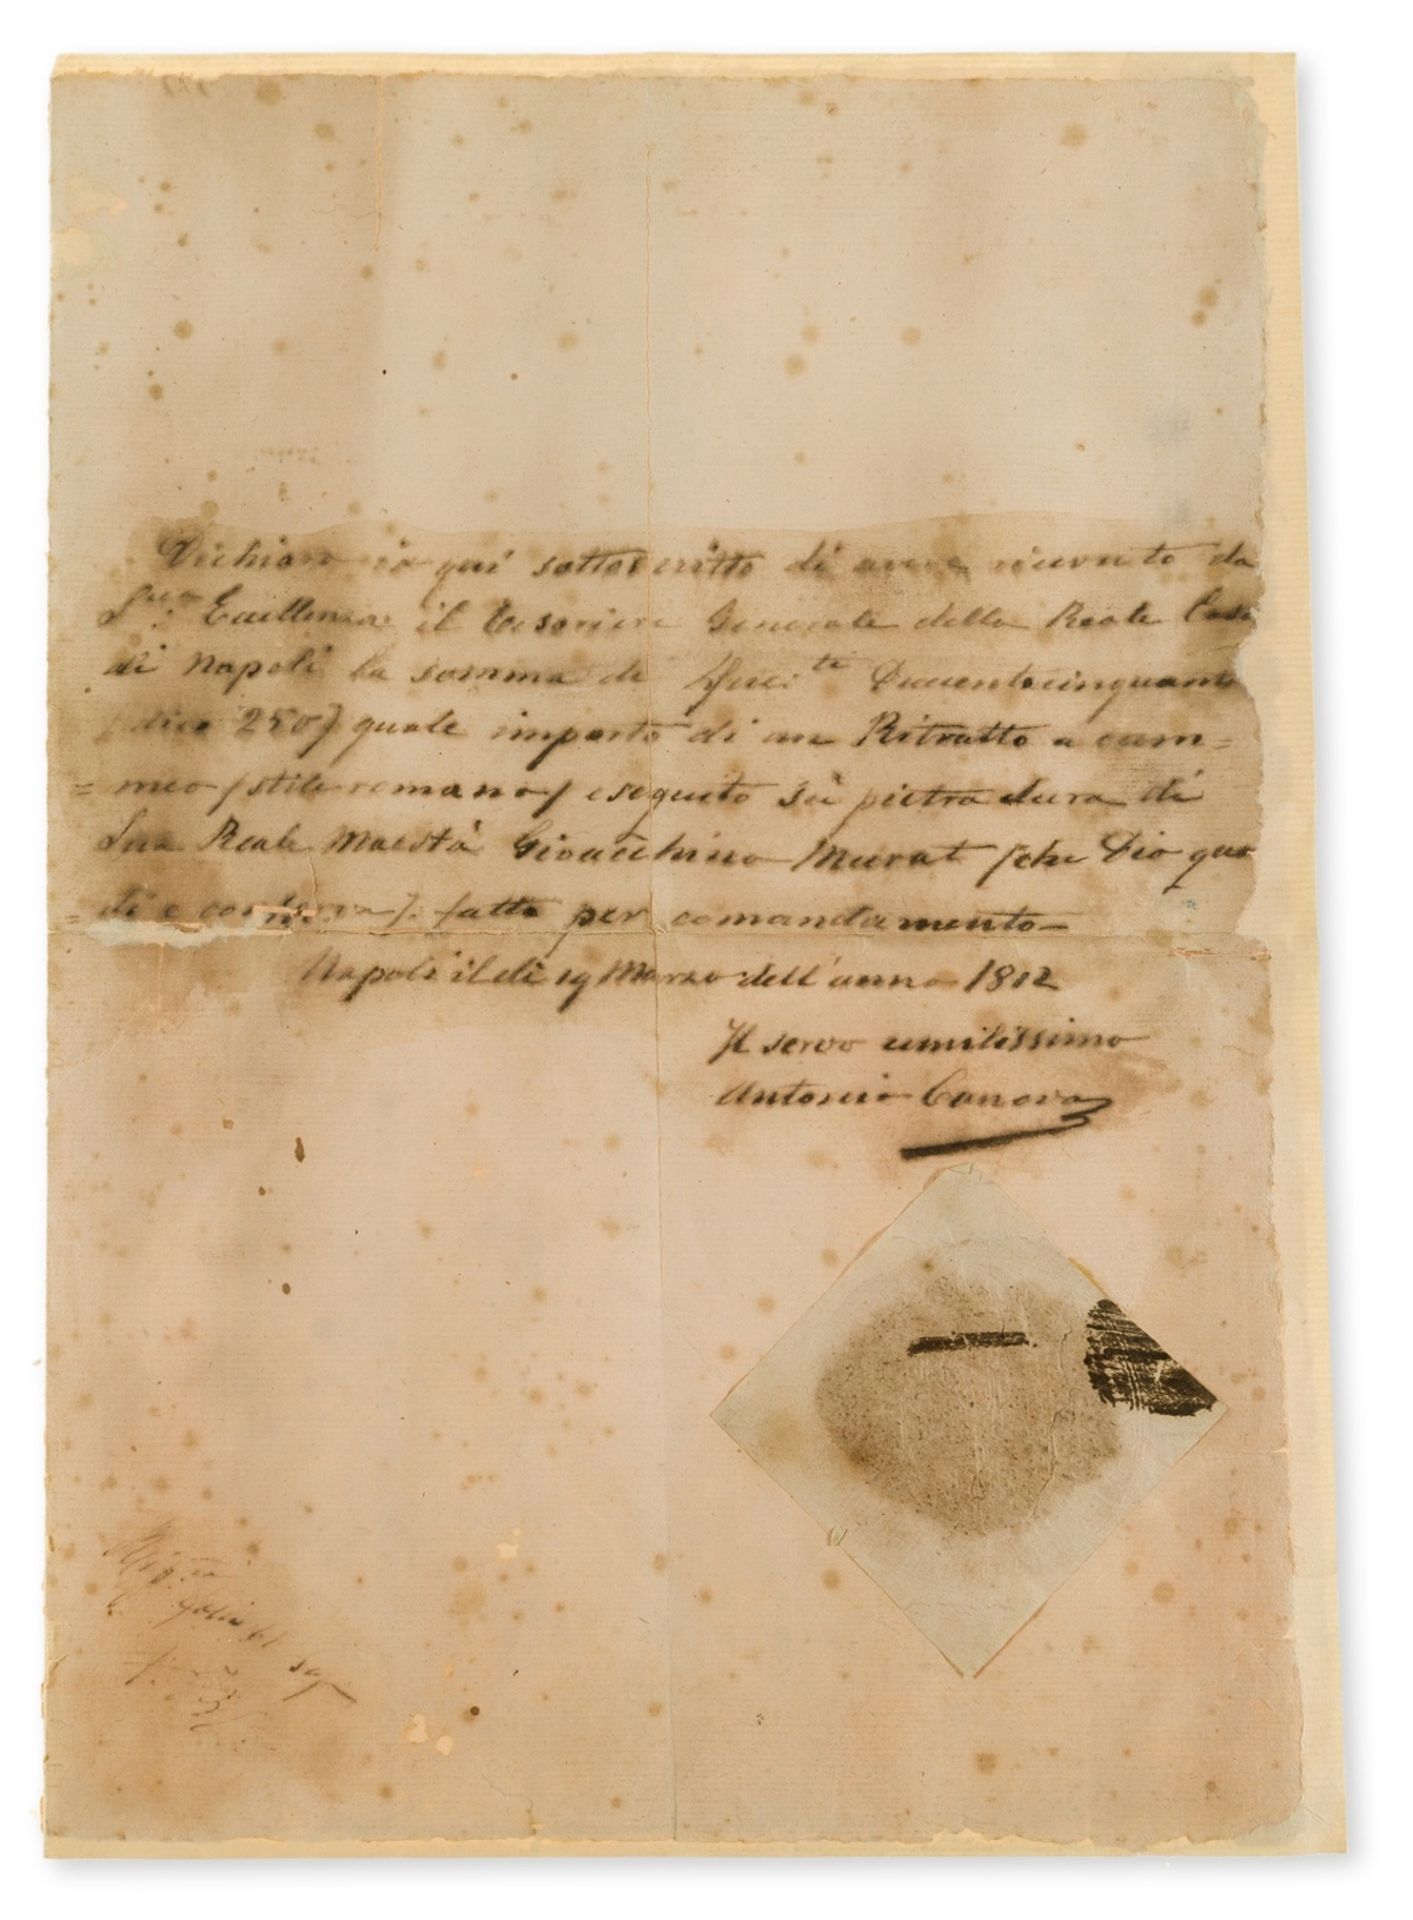 Dichiaro io qui sottoscritto di avere ricevuto da
Sua Eccellenza il tesoriere Generale della Reale Casa
di Napoli la somma di Ducentocinquanta
/ dico 250 / quale importo di un Ritratto a cam=
=meo / stile romano / eseguito sù pietra dura di
Sua Reale Maestà Gioacchino Murat / che Dio guar
=di e conserva /: fatto per comandamento—
Napoli il dì 19 Marzo dell'anno 1812
Il servo umilissimo
Antonio Canova